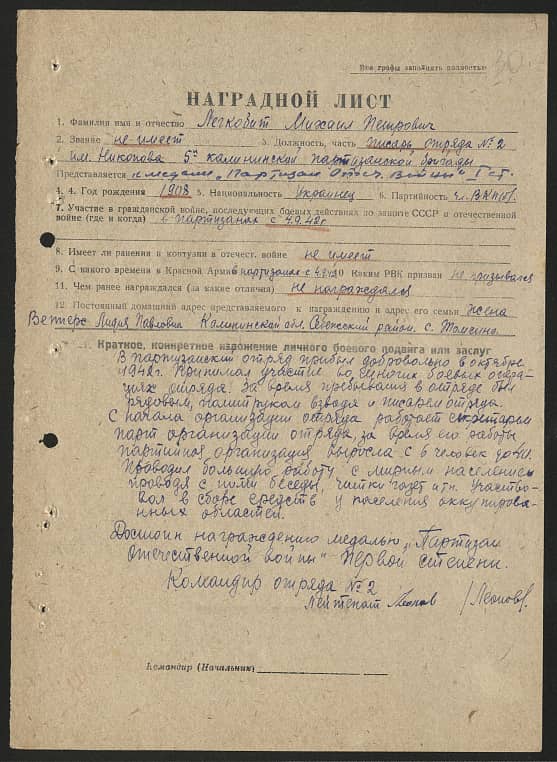 Все графы заполнять полностью
НАГРАДНОЙ ЛИСТ
1. Фамилия имя и отчество Легковит Михаил Петрович
2. Звание не имеет 3. Должность, часть писарь отряда № 2
им. Никонова 5й калининской партизанской бригады
Представляется к медали „Партизан Отеч. Войны" I ст.
4. 4. Год рождения 1908 5. Национальность Украинец 6. Партийность чл. ВКП(б)
7. Участие в гражданской войне, последующих боевых действиях по защите СССР и отечественной
войне (где и когда) в партизанах с 4.9.42г
8. Имеет ли ранения и контузии в отечест. войне не имеет
9. С какого времени в Красной Армии партизанах с 10 Каким РВК призван не призывался
11. Чем ранее награждался (за какие отличия) не награждался
12. Постоянный домашний адрес представляемого к награждению и адрес его семьи жена
Лидия Павловна Калининской обл. Себежский район. с. Томсино.
Краткое, конкретное изложение личного боевого подвига или заслуг
В партизанский отряд прибыл добровольно в октябре
1942г. Принимал участие во многих боевых опера-
циях отряда. За время пребывания в отряде был
рядовым, политруком взвода и писарем отряда.
С начала организации отряда работает секретарем
парт организации отряда, за время его работы
партийная организация выросла с 6 человек до
Проводил большую работу с мирным населением
проводя с ними беседы, читки газет и тп. Участво-
вал в сборе средств у населения оккупирова-
нных областей.
Достоин награждению медалью „Партизан
Отечественной войны" первой степени.
Командир отряда № 2
Лейтенант Леонов /Леонов/.
Командир (Начальник)